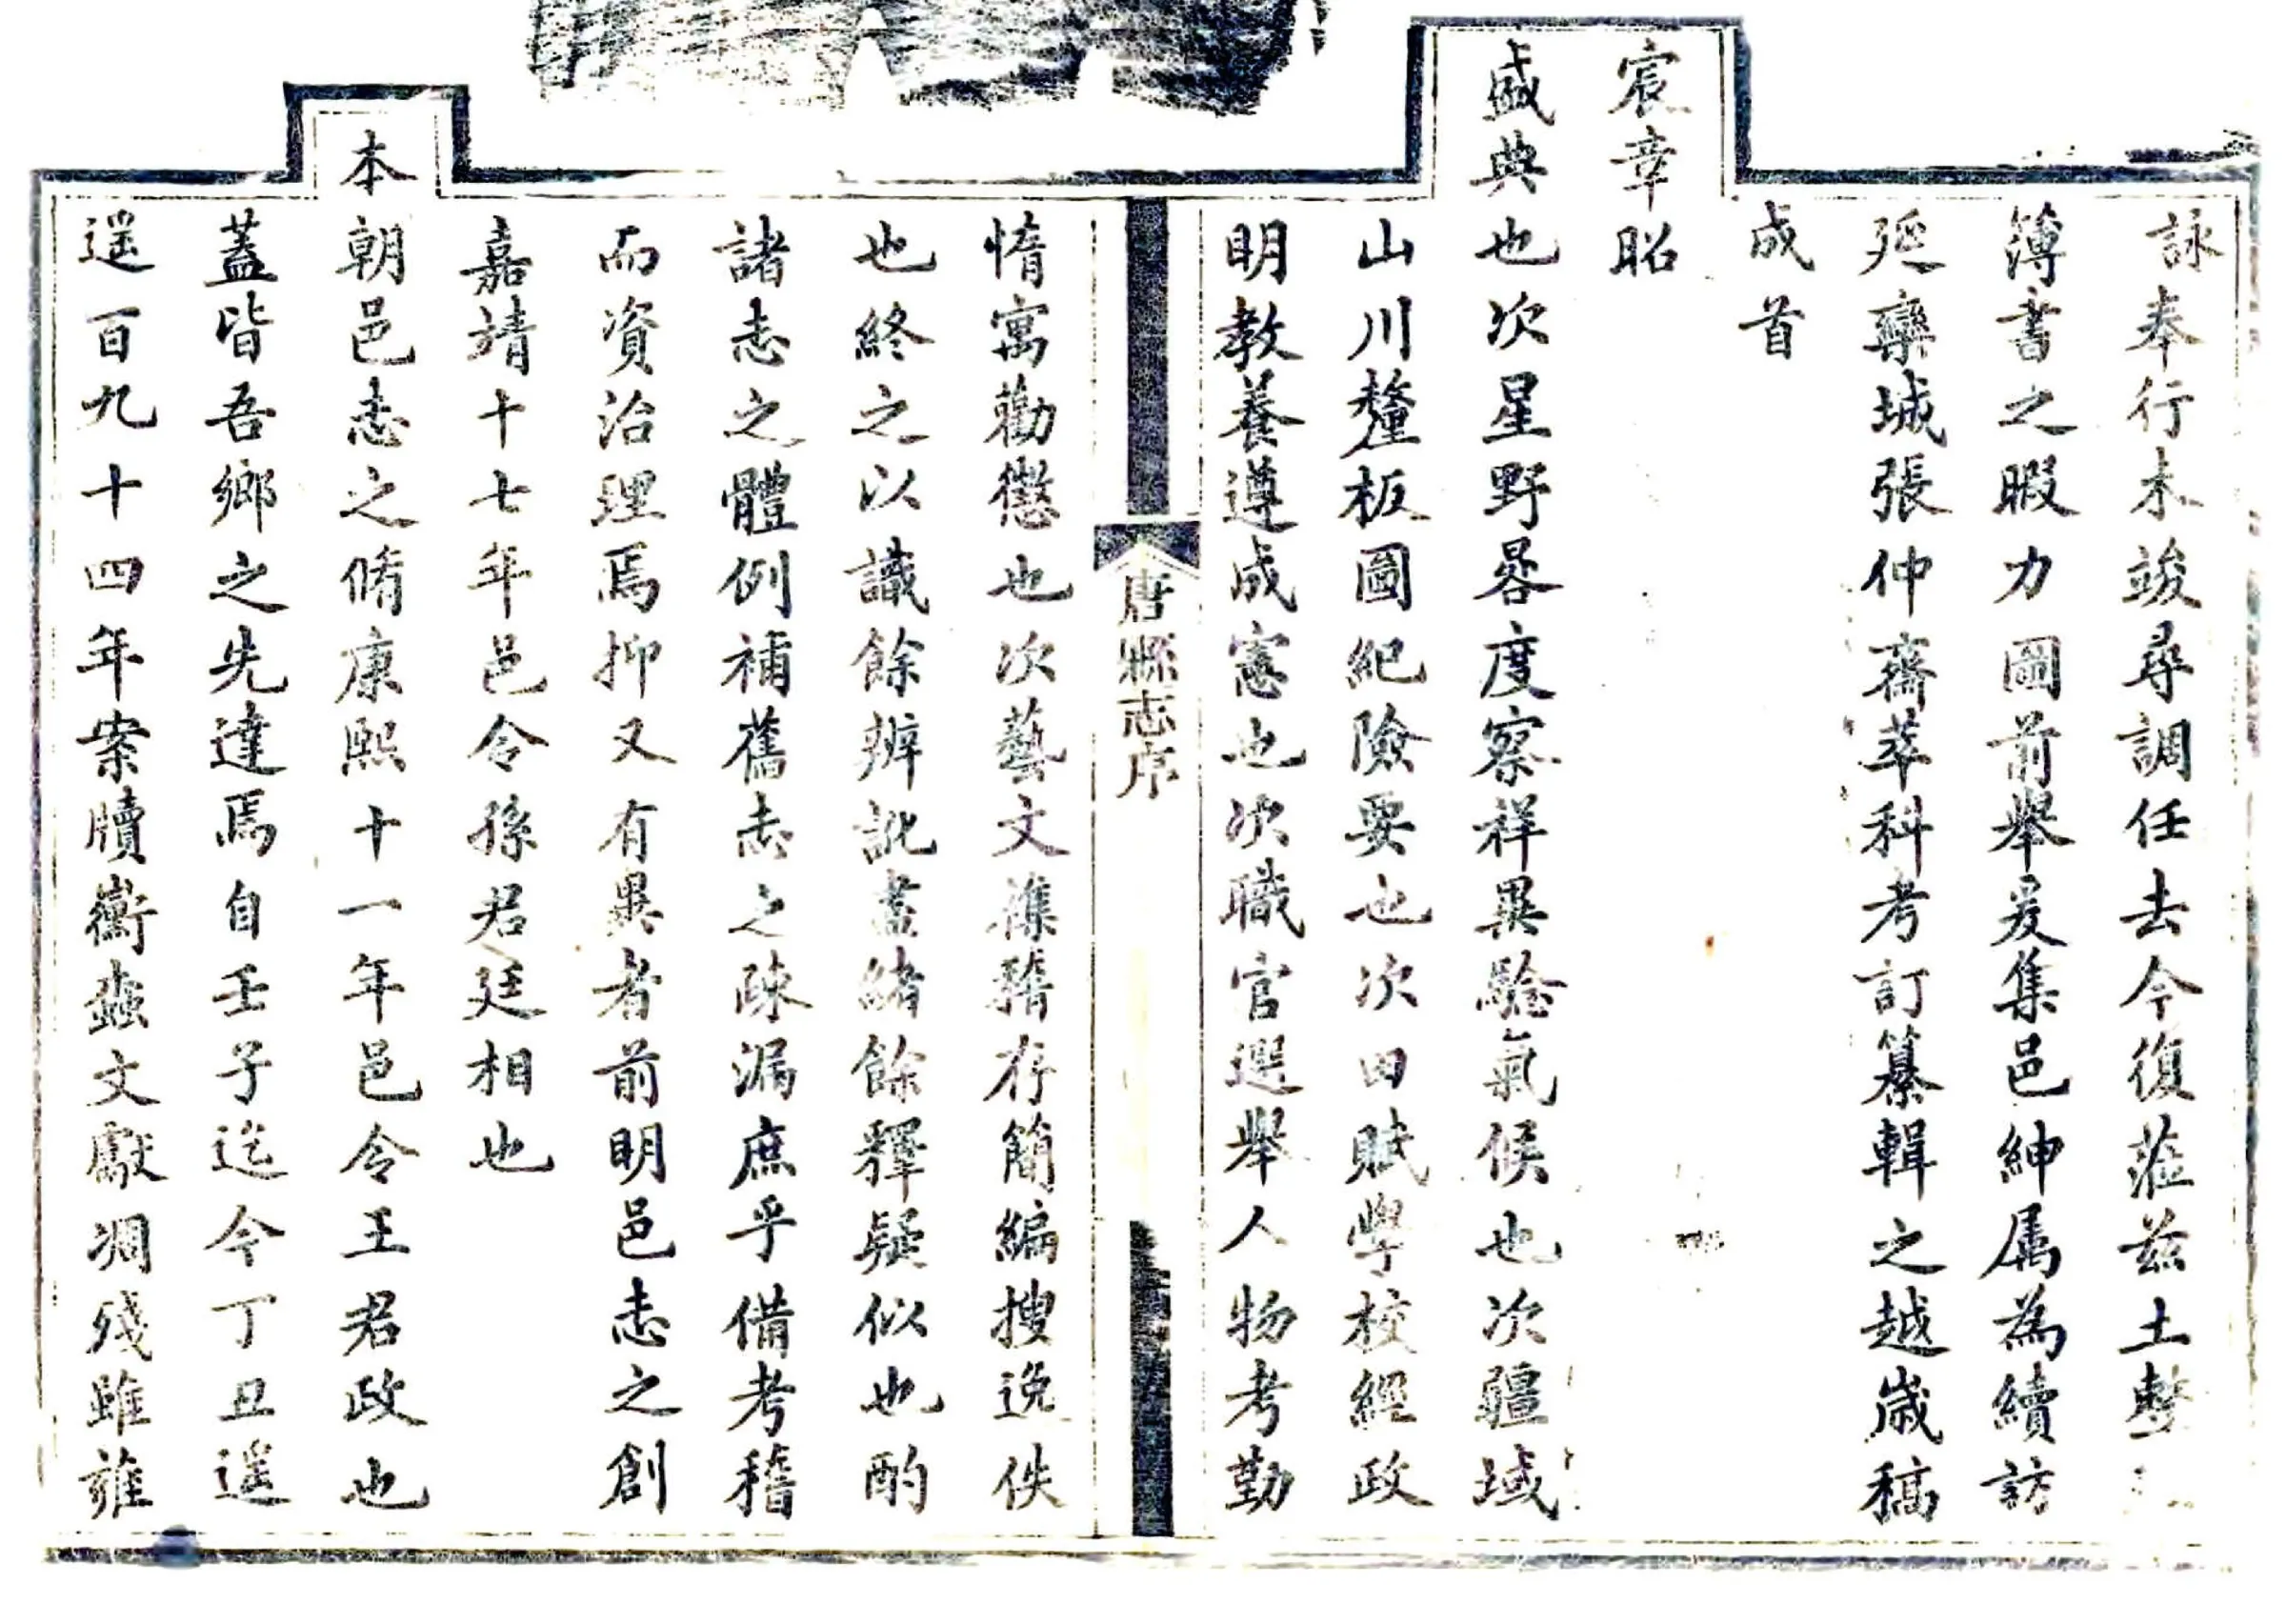 詠奉行未竣尋調任去今復蒞兹土整
簿書之暇力圖前舉爰集邑紳属為續訪
延欒城張仲齋萃科考訂纂輯之越歲稿
成首
宸章昭
盛典也次星野晷度察祥異驗氣候也次疆域
山川釐板圖紀險要也次田賦學校經政
明教養遵成憲也次職官選舉人物考勤
唐縣志序
惰寓勸懲也次藝文襍稽存簡編搜逸佚
也終之以識餘辨訛畫緒餘釋疑似也酌
諸志之體例補舊志之疎漏庶乎備考稽
而資治理焉抑又有異者前明邑志之創
嘉靖十七年邑令孫君廷相也
本朝邑志之脩康熙十一年邑令王君政也
蓋皆吾鄉之先達焉自壬子迄今丁丑遥
遥百九十四年案牘蠹文獻凋殘雖誰